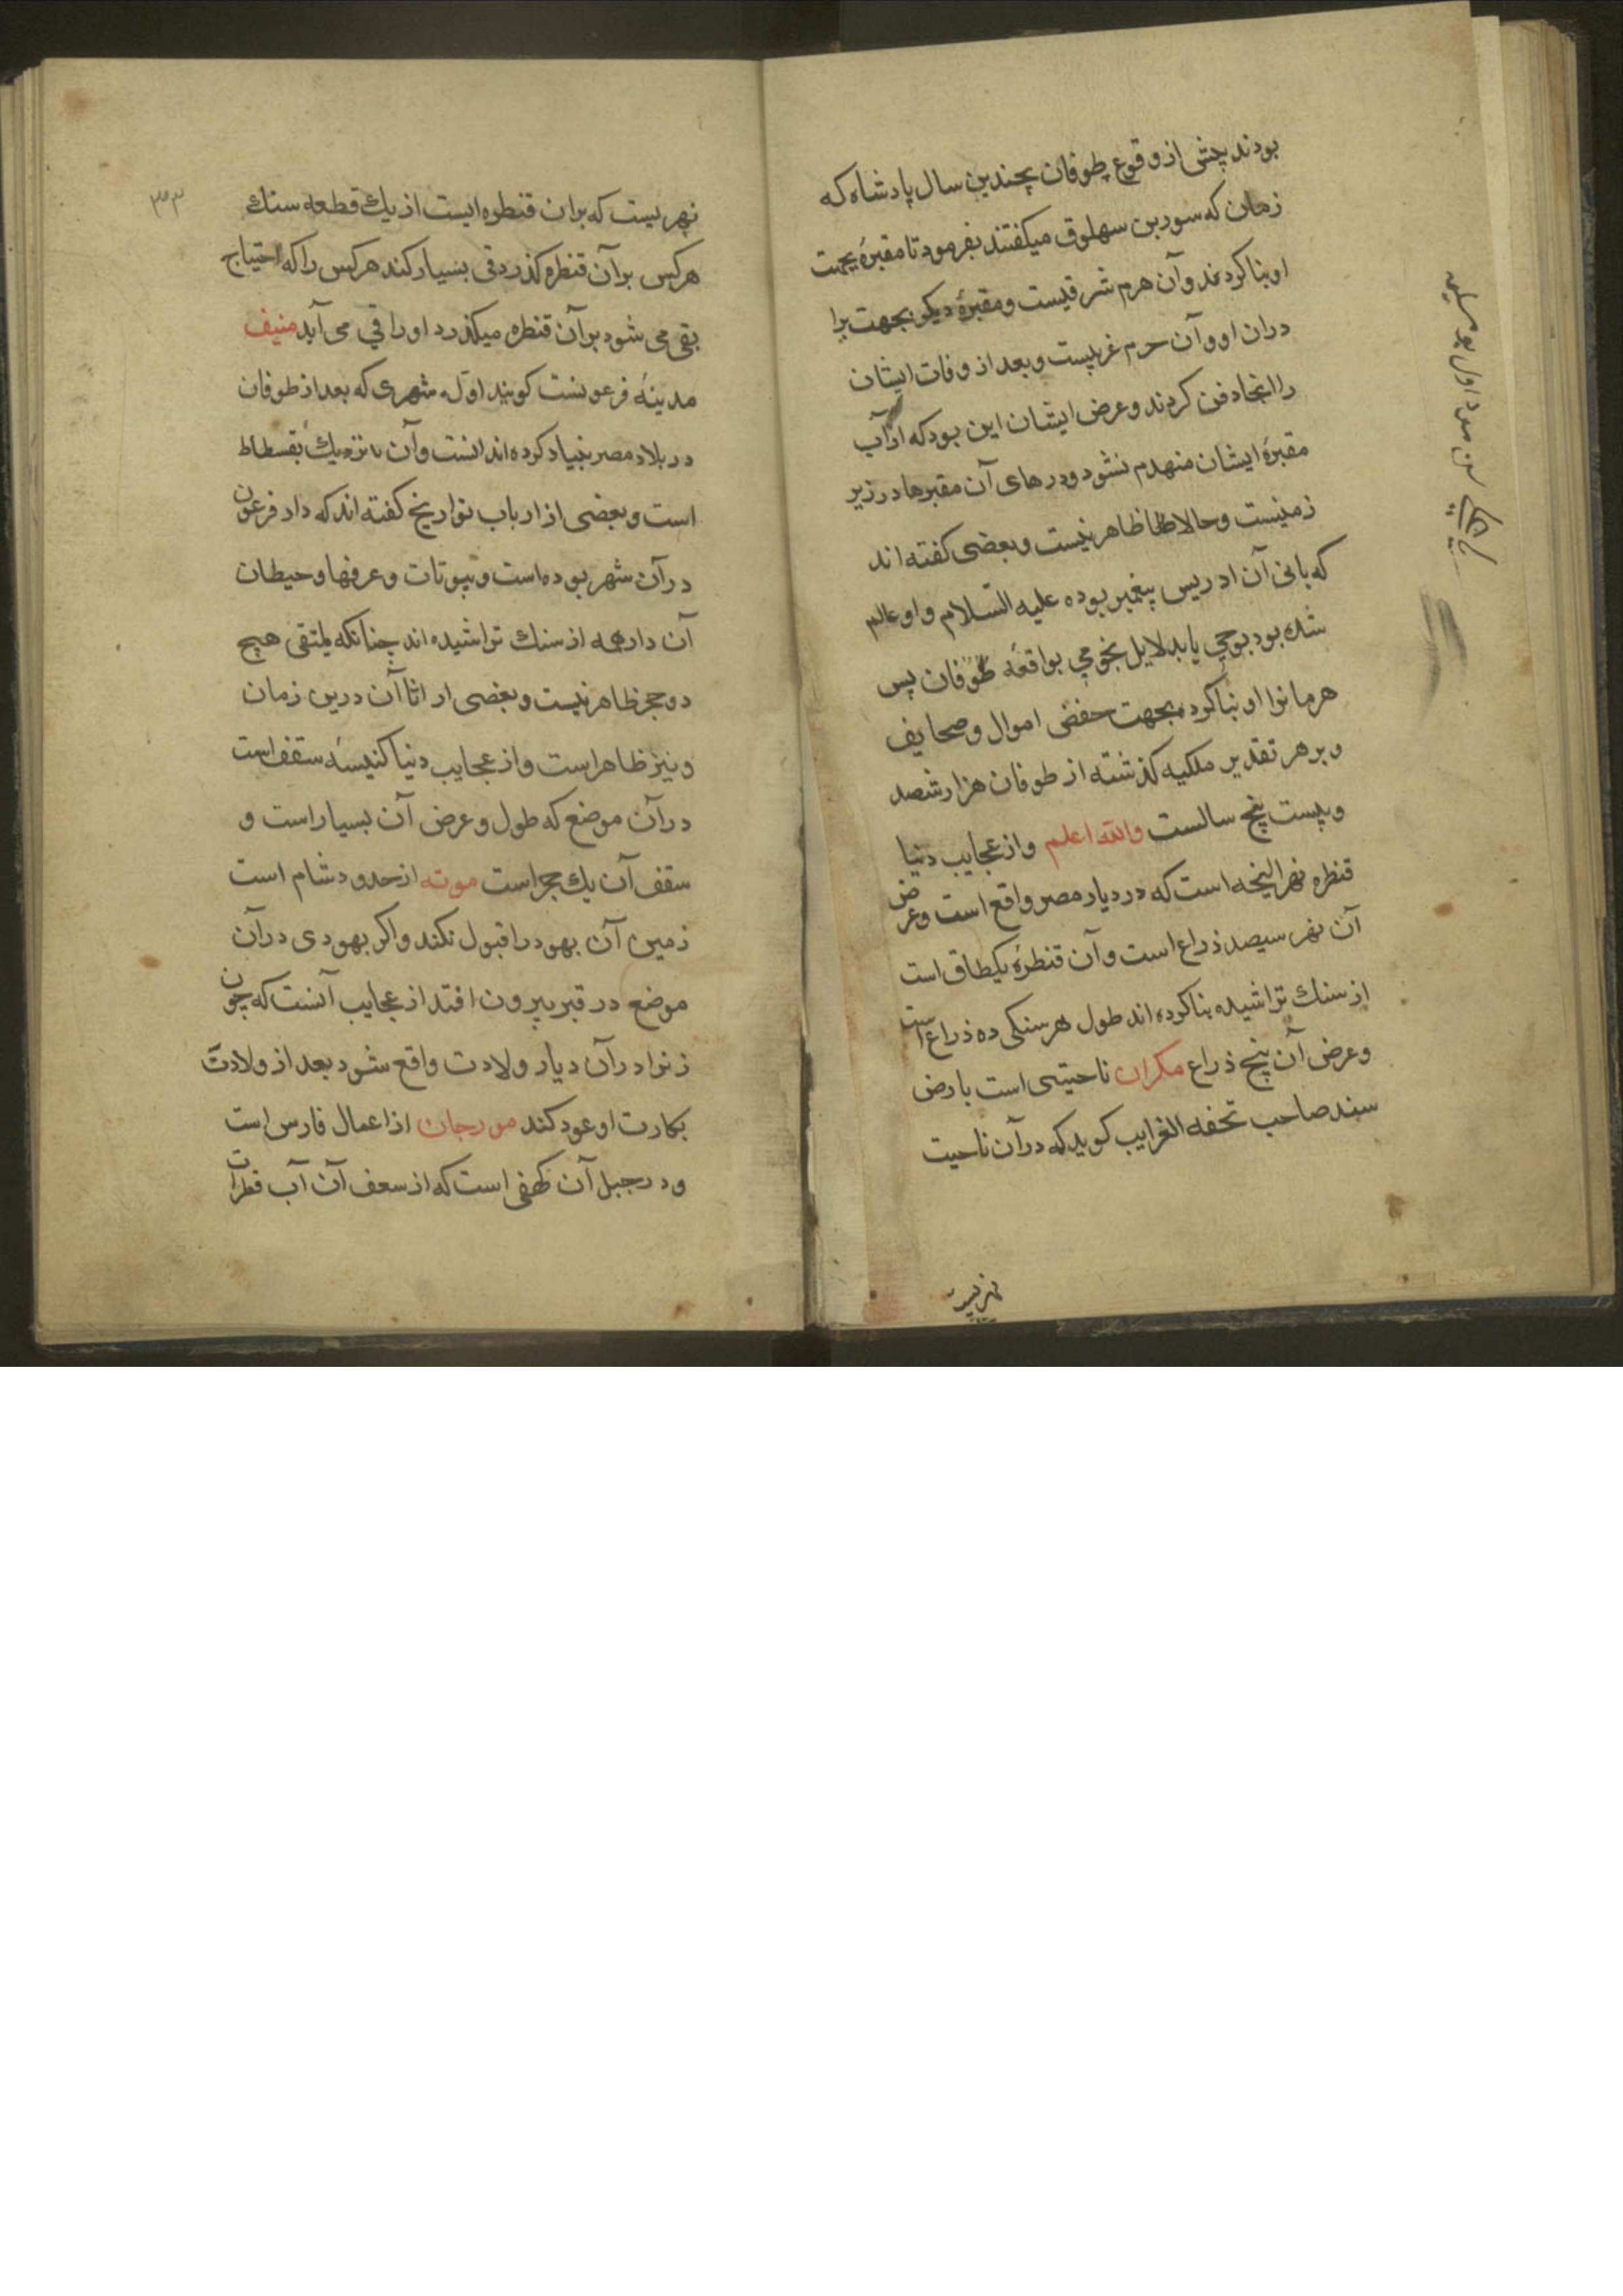 بودند پیش از وقوع طوفان بچندین سال پادشاه که
زمان که سورین سهلوق میکفتند بفرمود تا مقبرهٔ بجهت
او بنا کردند و آن هرم شرقیست و مقبرهٔ دیکر بجهت برا
دران او و آن حرم غربیست و بعد از وفات ایشان
را انجا دفن کردند و عرض ایشان این بود که از آب
مقبرهٔ ایشان منهدم نشود و درهای آن مقبرها در زیر
زمینست و حالا ظاهر نیست و بعضی کفته اند
که بانی آن ادریس پیغمبر بوده علیه السلام و او عالم
شده بود بوحی یا بدلایل نجومی بواقعه طوفان پس
هرمانرا او بنا کرد بجهت حفض اموال و صحایف
و بر هر تقدیر ملکیه کذشته از طوفان هزار شصد
و بیست پنج سالست والله اعلم و از عجایب دنیا
قنطره نهر النجه است که در دیار مصر واقع است و عرض
آن نهر سیصد ذراع است و آن قنطرهٔ یکطاق است
از سنك تراشیده بنا کرده اند طول هر سنکی ده ذراع است
و عرض آن پنج ذراع مکران ناحیتی است بارض
سند صاحب تحفه الغرایب کوید که در آن ناحیت
نهریست
۳۵۳
نهریست که بران قنطره ایست از یك قطعه سنك
هرکس بر آن قنطره کذرد قی بسیار کند هرکس را که احتیاج
بقی می شود بر آن قنطره میکذرد او را قی می آید منیف
مدینهٔ فرعونست کویند اول شهری که بعد از طوفان
در بلاد مصر بنیاد کرده اند انست و آن نزدیك بقسطاط
است و بعضی از ارباب تواریخ کفته اند که دار فرعون
در آن شهر بوده است و بیوتات و غرفها و حیطان
آن دار همه از سنك تراشیده اند چنانکه ملتقی هیچ
دو حجر ظاهر نیست و بعضی از اثا آن درین زمان
و نیز ظاهر است و از عجایب دنیا کنیسهٔ سقف است
در آن موضع که طول و عرض آن بسیار است و
سقف آن یك حجر است موته از حدود شام است
زمین آن یهود را قبول نکند و اکر یهودی در آن
موضع در قبر بیرون افتد از عجایب آنست که چون
زنرا در آن دیار ولادت واقع شود بعد از ولادت
بکارت او عود کند مورجان از اعمال فارس است
و در جبل آن کهفی است که از سعف آن آب قطرات